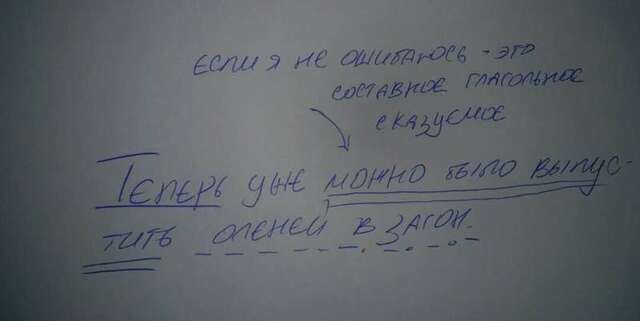 если я не ошибаюсь - это
составное глагольное
сказуемое
Теперь уже можно было выпус-
тить оленей в загон.